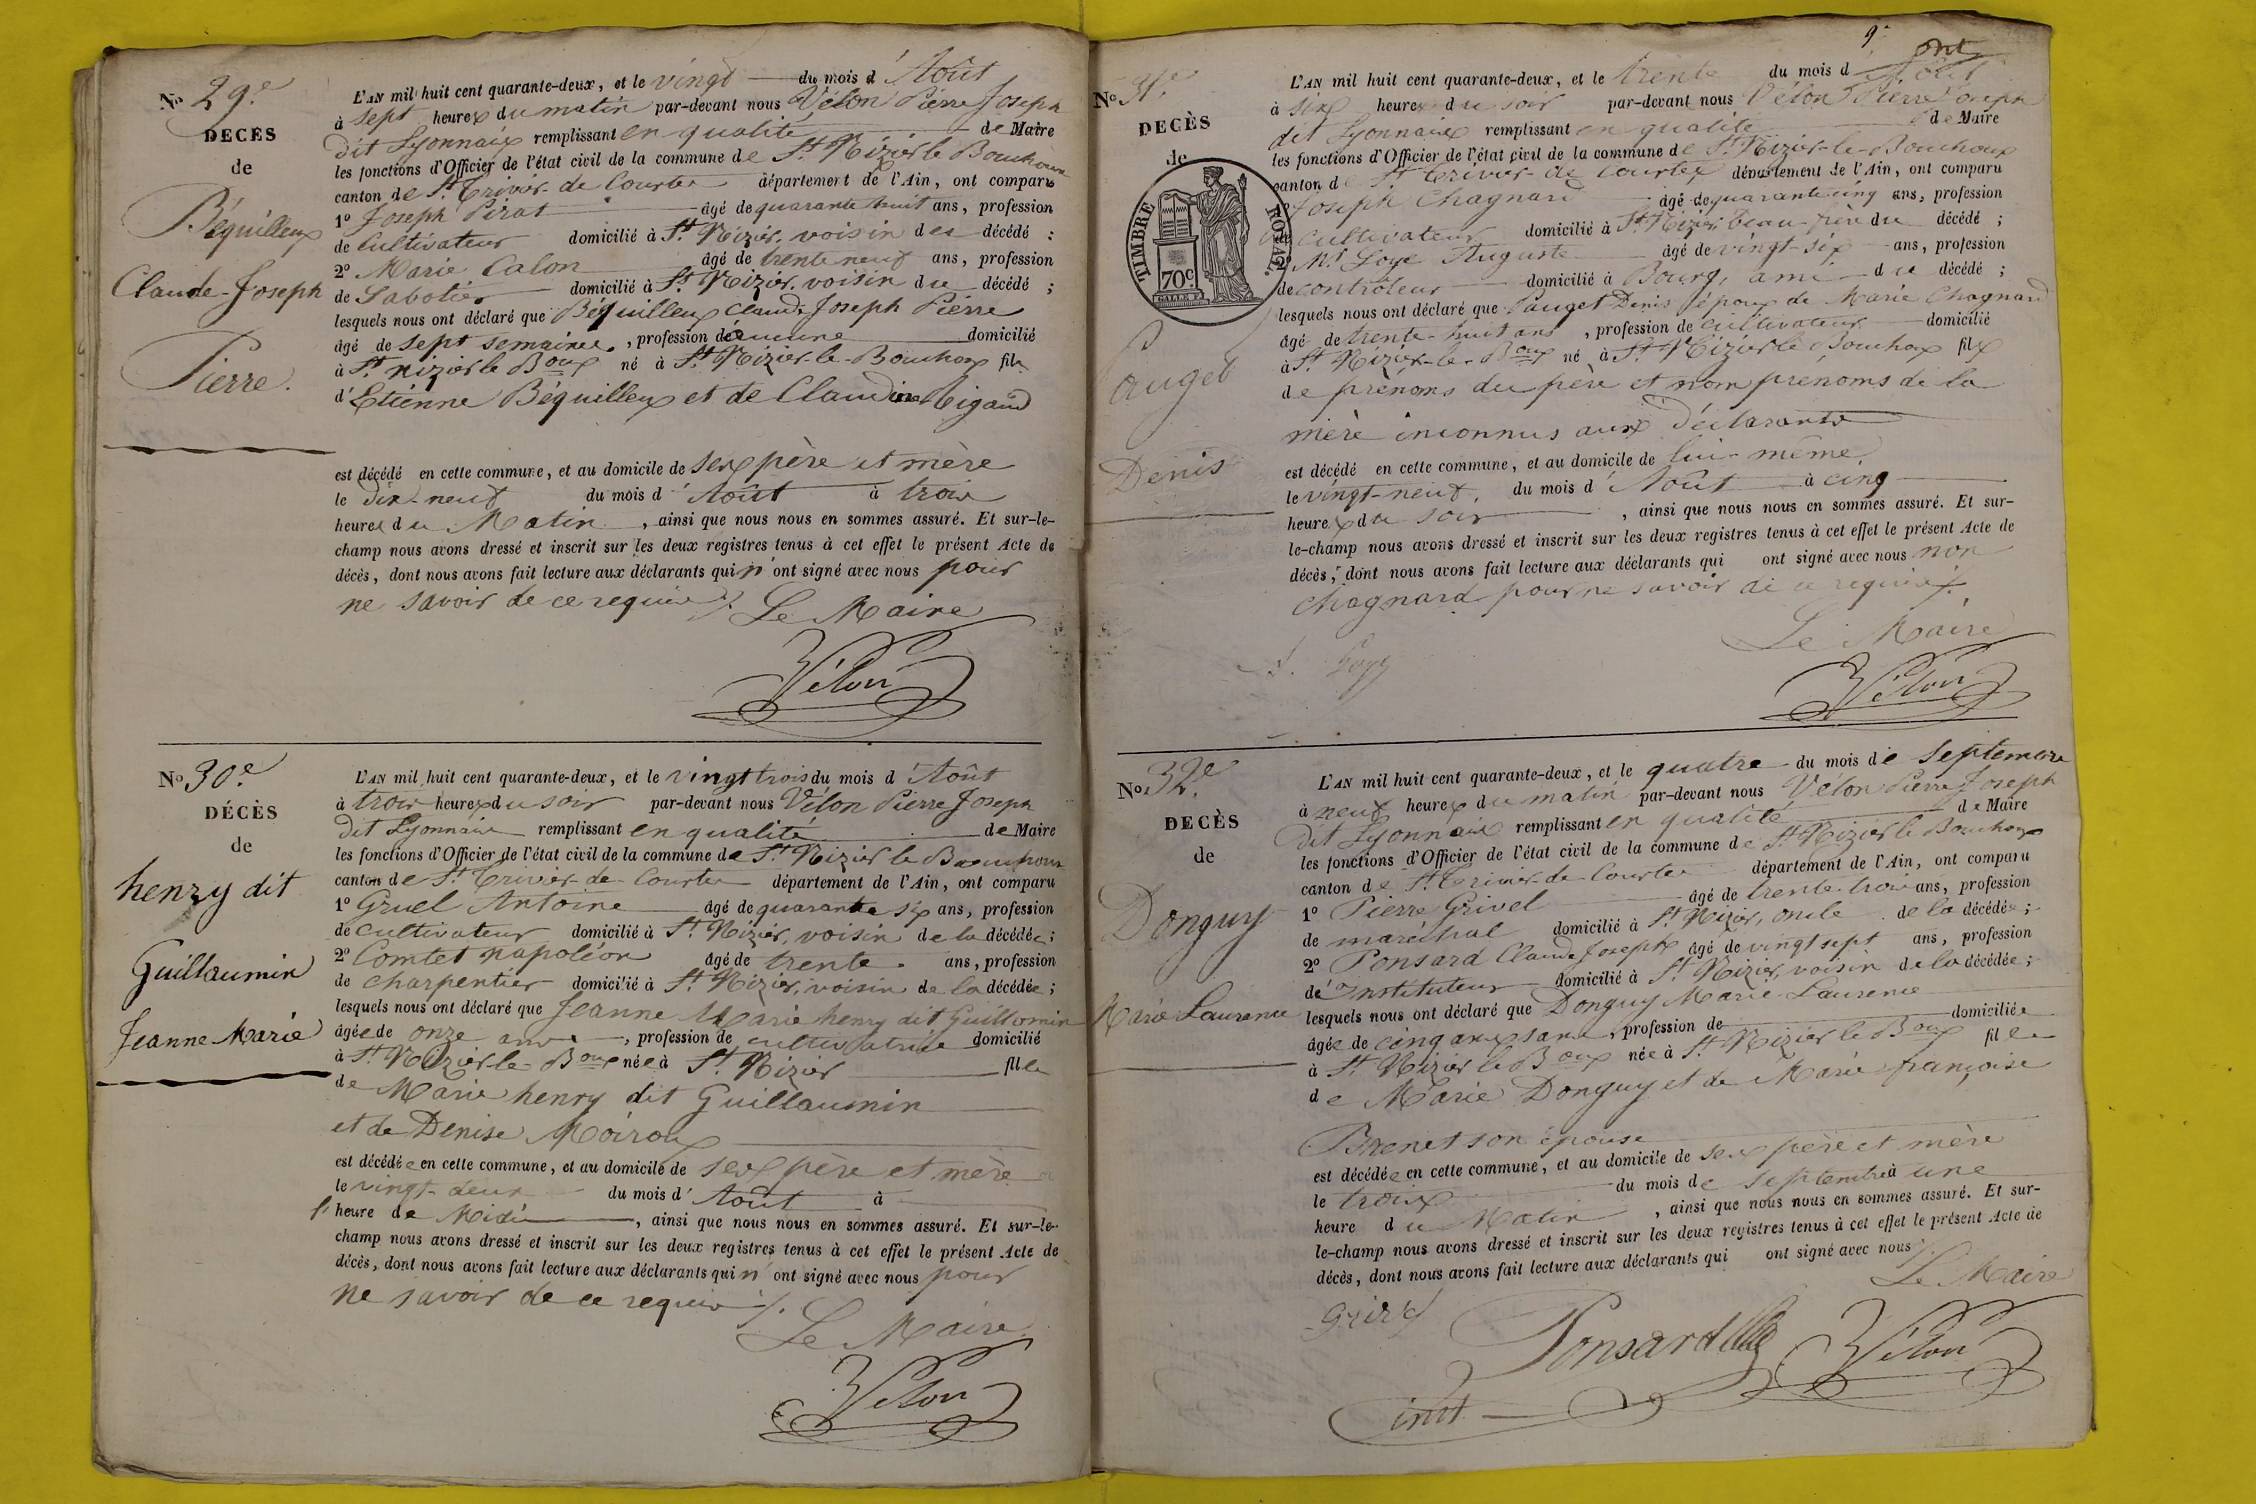 No 29.e
DECÈS
de
Béquilleux
Claude-Joseph
Pierre.
L'AN mil huit cent quarante-deux, et le vingt du mois d'Août
à sept heures du matin par-devant nous Vélon Pierre Joseph
dit Lyonnais remplissant en qualité de Maire
les fonctions d'Officier de l'état civil de la commune de St Nizier le Bouchoux
canton de St Trivier-de-Courtes département de l'Ain, ont comparu
1º Joseph Pirat âgé de quarante huit ans, profession
de Cultivateur domicilié à St Nizier, voisin des décédé ;
2º Marie Calon âgé de trente neuf ans, profession
de Sabotier domicilié à St Nizier, voisin du décédé ;
lesquels nous ont déclaré que Béquilleux Claude Joseph Pierre
âgé de sept semaines, profession d'aucune domicilié
à St nizier le Boux né à St Nizier-le-Bouchoux fils
d'Etiénne Béquilleux et de Claudine Rigaud
est décédé en cette commune, et au domicile de ses père et mère
le dix-neuf du mois d'Août à trois
heures du Matin, ainsi que nous nous en sommes assuré. Et sur-le-
champ nous avons dressé et inscrit sur les deux registres tenus à cet effet le présent Acte de
décès, dont nous avons fait lecture aux déclarants qui n'ont signé avec nous pour
ne savoir de ce requis ./. Le Maire
Vélon
No 30.e
DÉCÈS
de
henry dit
Guillaumin
Jeanne Marie
L'AN mil huit cent quarante-deux, et le vingt trois du mois d'Août
à trois heures du soir par-devant nous Vélon Pierre Joseph
dit Lyonnais remplissant en qualité de Maire
les fonctions d'Officier de l'état civil de la commune de St Nizier le Bouchoux
canton de St Trivier-de-Courtes département de l'Ain, ont comparu
1º Gruel Antoine âgé de quarante six ans, profession
de cultivateur domicilié à St Nizier, voisin de la décédée ;
2º Comtet napoléon âgé de trente ans, profession
de charpentier domicilié à St Nizier, voisin de la décédée ;
lesquels nous ont déclaré que Jeanne Marie henry dit Guillomin
âgée de onze ans, profession de cultivatrice domicilié
à St Nizier-le-Boux née à St Nizier fille
de Marie henry dit Guillaumin
et de Denise Moiroux
est décédée en cette commune, et au domicile de ses père et mère
le vingt-deux du mois d'Août à
l'heure de Midi, ainsi que nous nous en sommes assuré. Et sur-le-
champ nous avons dressé et inscrit sur les deux registres tenus à cet effet le présent Acte de
décès, dont nous avons fait lecture aux déclarants qui n'ont signé avec nous pour
ne savoir de ce requis ./.
Le Maire
Vélon
9.e
No 31.e
DECÈS
de
TIMBRE ROYAL.
70c.
Pauget
Denis
L'AN mil huit cent quarante-deux, et le trente du mois d'Août
à six heures du soir par-devant nous Vélon Pierre Joseph
dit Lyonnais remplissant en qualité de Maire
les fonctions d'Officier de l'état civil de la commune de St Nizier-le-Bouchoux
canton de St Trivier-de-Courtes département de l'Ain, ont comparu
Joseph Chagnard âgé de quarante cinq ans, profession
de cultivateur domicilié à St Nizier beau-frère du décédé ;
Mr Loye Auguste âgé de vingt-six ans, profession
de contrôleur domicilié à Bourg, ami du décédé ;
lesquels nous ont déclaré que Pauget Denis époux de Marie Chagnard
âgé de trente-huit ans, profession de cultivateur domicilié
à St Nizier-le-Boux né à St Nizier le Bouchoux fils
de prénoms du père et nom prénoms de la
mère inconnus aux déclarants
est décédé en cette commune, et au domicile de lui-même
le vingt-neuf, du mois d'Août à cinq
heures du soir, ainsi que nous nous en sommes assuré. Et sur-
le-champ nous avons dressé et inscrit sur les deux registres tenus à cet effet le présent Acte de
décès, dont nous avons fait lecture aux déclarants qui ont signé avec nous non
Chagnard pour ne savoir de ce requis ./.
Le Maire
Vélon
No 32.e
DECÈS
de
Donguy
Marie Laurence
L'AN mil huit cent quarante-deux, et le quatre du mois de septembre
à neuf heures du matin par-devant nous Vélon Pierre Joseph
dit Lyonnais remplissant en qualité de Maire
les fonctions d'Officier de l'état civil de la commune de St Nizier le Bouchoux
canton de St Trivier-de-Courtes département de l'Ain, ont comparu
1º Pierre Grivel âgé de trente-trois ans, profession
de maréchal domicilié à St Nizier, oncle de la décédée ;
2º Ponsard Claude Joseph âgé de vingt sept ans, profession
d'Instituteur domicilié à St Nizier, voisin de la décédée ;
lesquels nous ont déclaré que Donguy Marie Laurence
âgée de cinq ans, profession de domiciliée
à St Nizier le Boux née à St Nizier le Boux fille
de Marie Donguy et de Marie françoise
Brenet son épouse
est décédée en cette commune, et au domicile de ses père et mère
le trois du mois de septembre à une
heure du Matin, ainsi que nous nous en sommes assuré. Et sur-
le-champ nous avons dressé et inscrit sur les deux registres tenus à cet effet le présent Acte de
décès, dont nous avons fait lecture aux déclarants qui ont signé avec nous ./.
Le Maire
Ponsard Vélon
inst